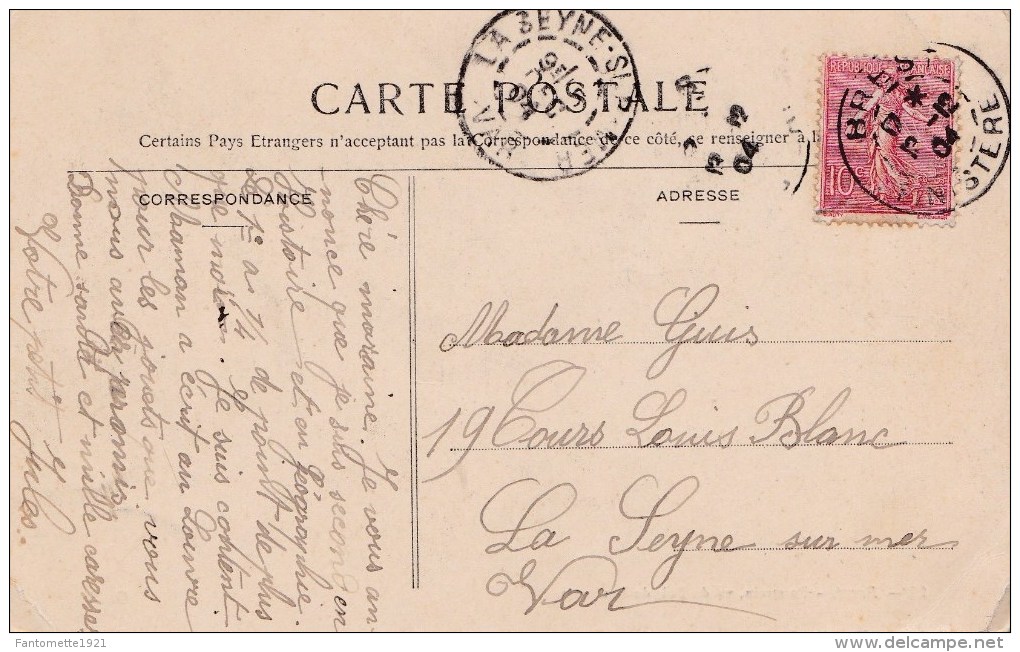 CARTE POSTALE
Certains Pays Etrangers n'acceptant pas la Correspondance de ce côté, se renseigner à la
CORRESPONDANCE
ADRESSE
LA SEYNE-S
MER
VAR
BREST
FINISTERE
04
RÉPUBLIQUE FRANÇAISE
10c
Chère maraine. Je vous an-
nonce que je suis second en
histoire et en géographie.
Le 1er a 14 de point de plus
que moi. Je suis content.
Maman a écrit au Louvre
pour les jouets que vous
nous avez promis.
Bonne santé et mille caresses
Votre petit Jules.
Madame Guis
19 Cours Louis Blanc
La Seyne sur mer
Var
Fantomette1921
delcampe.net